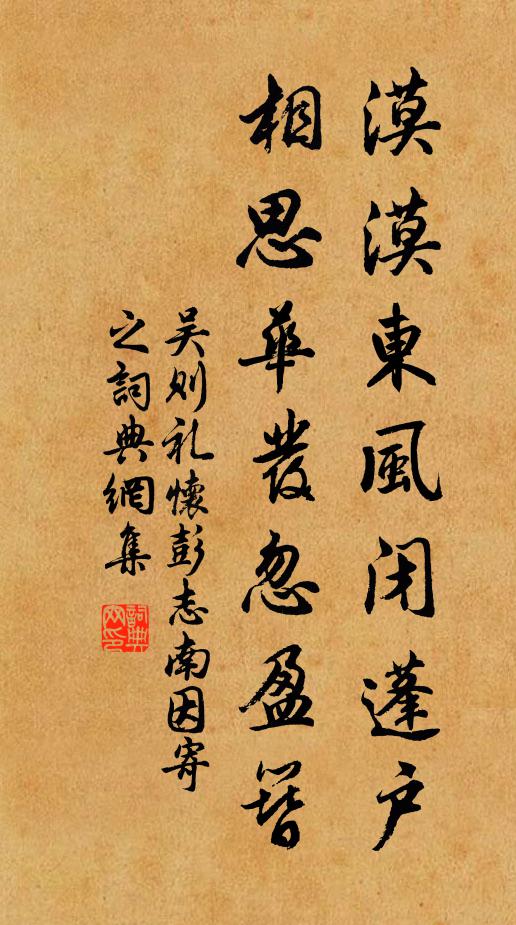 漠漠東風闭蓬户
相思華發忽盈簪
吴则礼懷彭志南因寄
之詞典網集
詞典网印